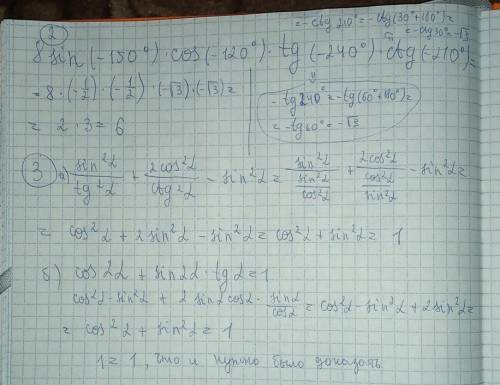 = -ctg 210° = -ctg(30°+180°) =
= -ctg 30° = -√3
②
8 sin(-150°) · cos(-120°) · tg(-240°) · ctg(-210°) =
= 8 · (-1/2) · (-1/2) · (-√3) · (-√3) =
= 2 · 3 = 6
-tg 240° = -tg(60°+180°) =
= -tg 60° = -√3
③ а) sin²α/tg²α + 2cos²α/ctg²α - sin²α = sin²α/(sin²α/cos²α) + 2cos²α/(cos²α/sin²α) - sin²α =
= cos²α + 2sin²α - sin²α = cos²α + sin²α = 1
б) cos2α + sin2α · tgα = 1
cos²α - sin²α + 2 sinα cosα · sinα/cosα = cos²α - sin²α + 2sin²α =
= cos²α + sin²α = 1
1 = 1, что и нужно было доказать